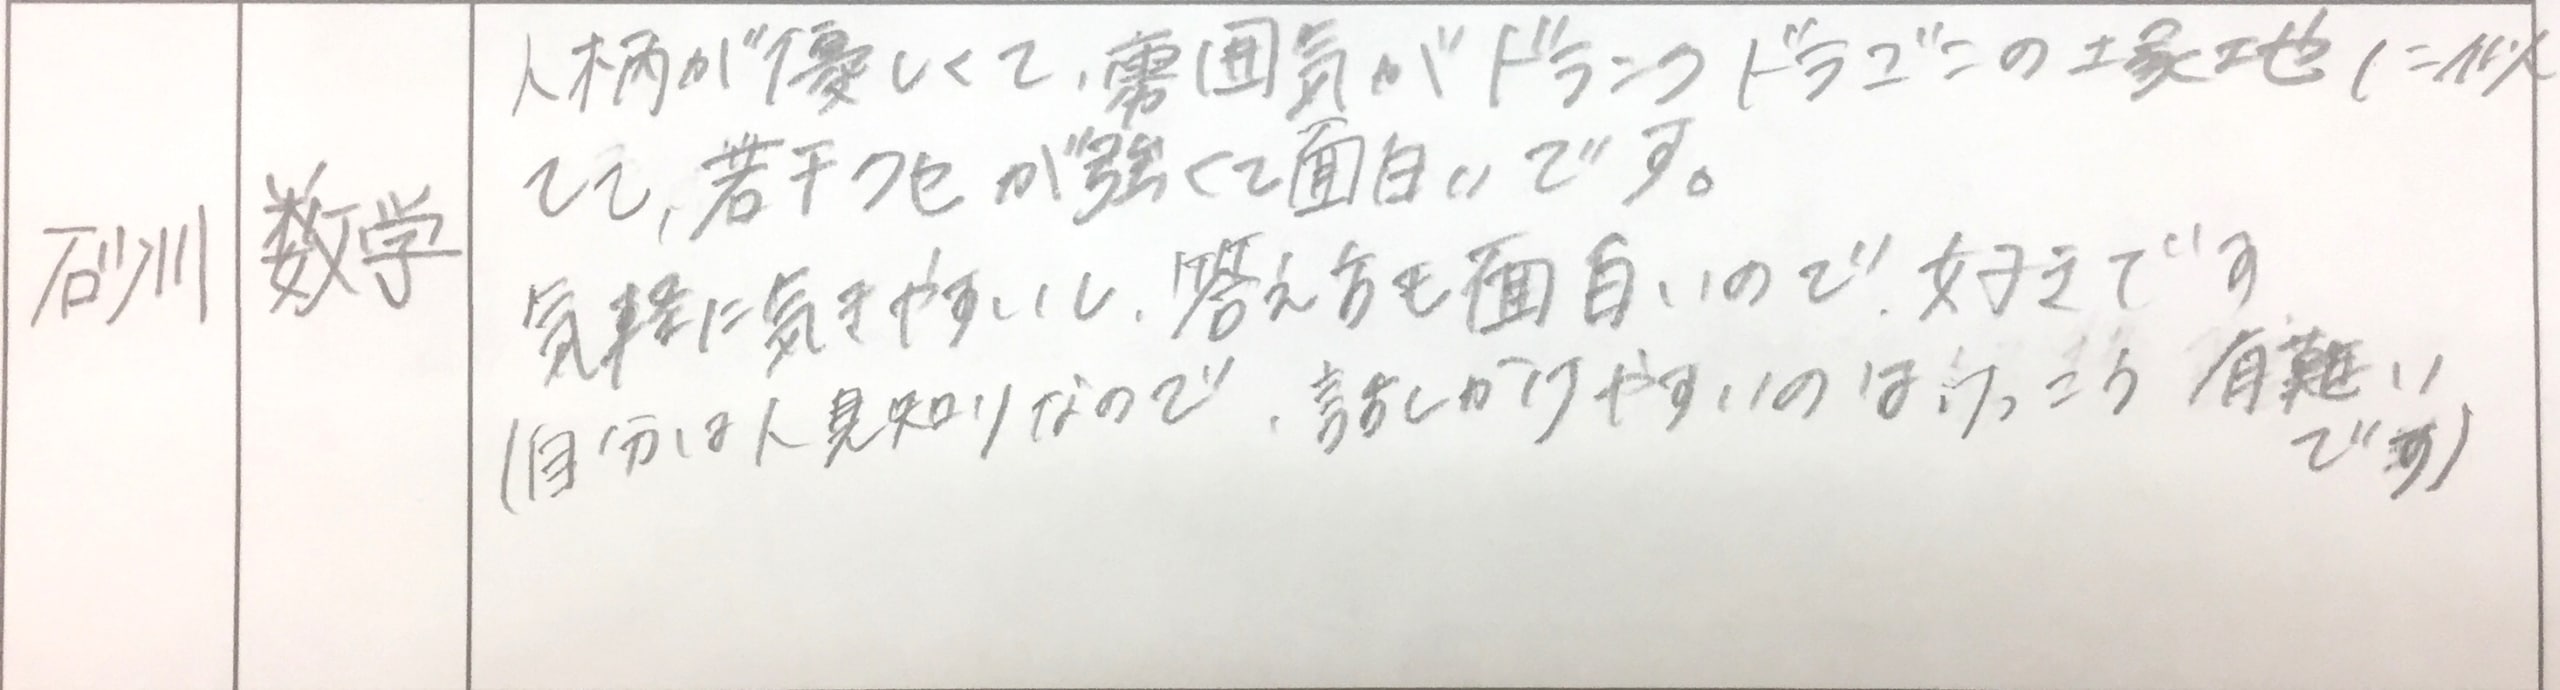 砂川
数学
人柄が優しくて、雰囲気がドランクドラゴンの塚地に似
てて、若干クセが強くて面白いです。
気軽に気きやすいし、答え方も面白いので、好きです
(自分は人見知りなので、話しかけやすいのはけっこう有難い
です)